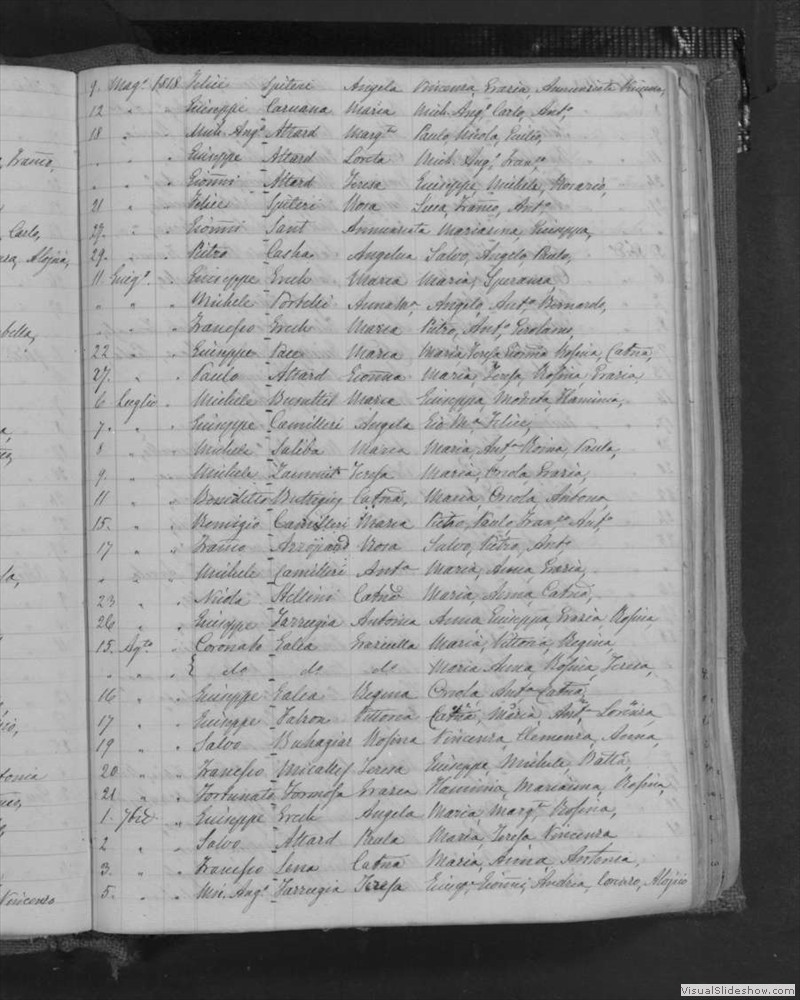 Franco,
Carlo,
Alojsia,
bella,
Vincenzo
9 Magº 1818 Felice Spiteri Angela Vincenza, Grazia, Annunziata
12 " " Giuseppe Caruana Maria Mich. Angº Carlo, Antº,
18 " " Mich. Angº Attard Margta Paulo, Nicola,
" " " Giuseppe Attard Loreta Mich. Angº, Franco
" " " Gionni Attard Teresa Giuseppe, Michele, Rosario,
21 " " Felice Spiteri Rosa Luca, Franco, Antº
27. " " Gionni Sant Annunziata Marianna, Giuseppa,
29. " " Pietro Casha Angelica Salvo, Angelo Paulo,
11 Giugº. " Giuseppe Grech Maria Maria, Speranza,
" " " Michele Portelli Anna Ma Angelo, Antº, Bernardo,
" " " Francesco Grech Maria Pietro, Antº, Girolamo
22 " " Giuseppe Pace Maria Maria Teresa Rosina, Catna,
27. " " Paulo Attard Gionna Maria, Teresa, Rosina, Grazia,
6 Luglio " Michele Maria Giuseppa, Modesta, Flaminia,
7. " " Giuseppe Camilleri Angela Gio Ma Felice,
8 " " Michele Saliba Maria Maria, Anta Paula,
9. " " Michele Zammit Teresa Maria, Orsola, Grazia,
11 " " Benedetto Buttigieg Catna, Maria Orsola, Antona
15. " " Remigio Camilleri Maria Pietro, Paulo Franco Antº
17 " " Franco Azzopardi Rosa Salvo, Pietro, Antº
" " " Michele Camilleri Anta Maria, Anna, Grazia,
23 " " Nicola Stellini Catna Maria, Anna, Catna,
26 " " Giuseppe Farrugia Antonia Anna, Giuseppa Grazia Rosina
15. Agto " Coronato Galea Graziulla Maria, Vittoria, Regina,
" " " { do do do Maria Anna, Rosina, Teresa,
16 " " Giuseppe Galea Regina Orsola, Anta Catna,
17 " " Giuseppe Falzon Vittoria Catna, Maria, Anta, Lorenza
19 " " Salvo Buhagiar Rosina Vincenza, Clemenza, Anna,
20 " " Francesco Micallef Teresa Giuseppa, Michele, Batta,
21 " " Fortunato Formosa Grazia Flaminia, Marianna, Rosina,
1. 7bre " Giuseppe Grech Angela Maria, Margta, Rosina,
2 " " Salvo Attard Paula Maria, Teresa, Vincenza
3. " " Francesco Sena Catna Maria, Anna, Antonia,
5. " " Mic. Angº Farrugia Teresa Gionni, Andrea, Alojsio
VisualSlideshow.com